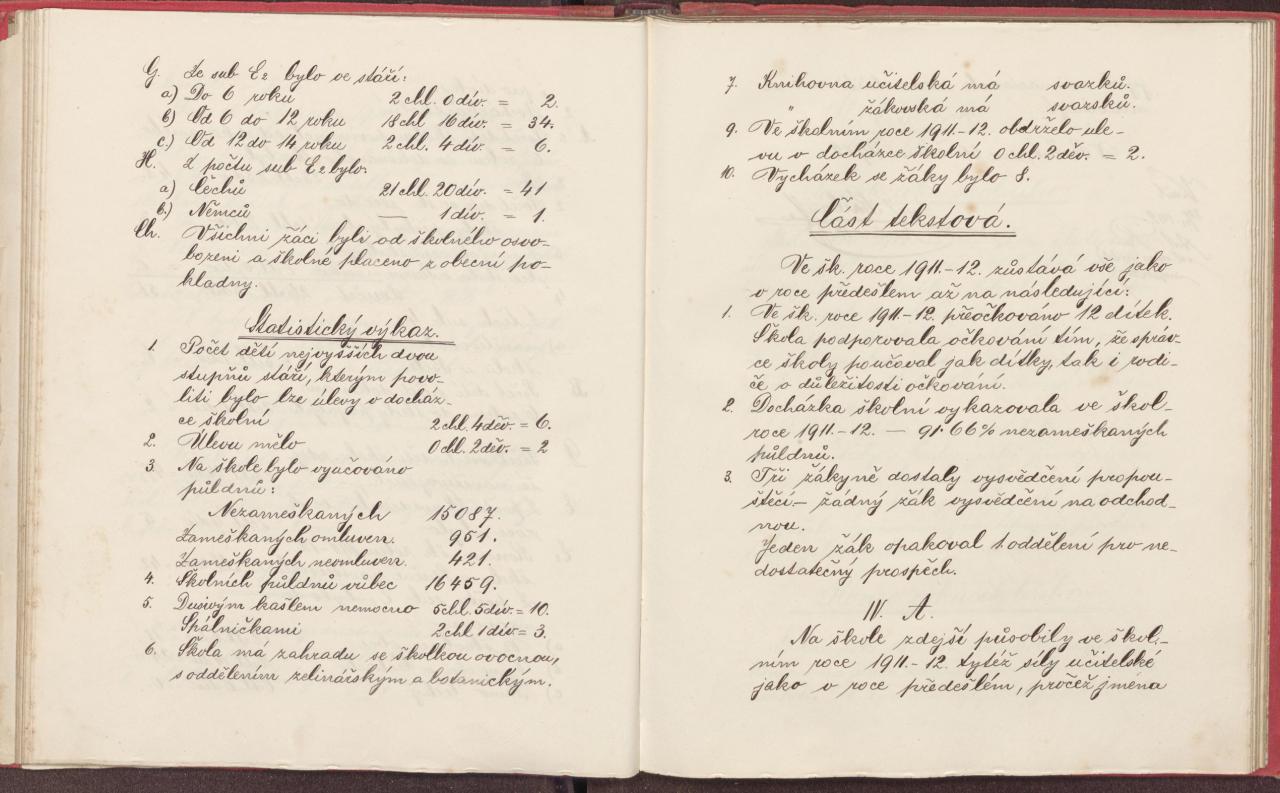 G. Ze sub E2 bylo ve stáří:
a.) Do 6 roku 2 chl. 0 dív. = 2.
b) Od 6 do 12 roku 18 chl 16 dív. = 34.
c.) Od 12 do 14 roku 2 chl. 4 dív. = 6.
H. Z počtu sub E2 bylo.
a) Čechů 21 chl. 20 dív. = 41
b.) Němců — 1 dív. = 1.
Ch. Všichni žáci byli od školného osvo-
bozeni a školné placeno z obecní po-
kladny.
Statistický výkaz.
1. Počet dětí nejvyšších dvou
stupňů stáří, kterým povo-
liti bylo lze úlevy v docház-
ce školní 2 chl. 4 děv. = 6.
2. Úlevu mělo 0 chl. 2 děv. = 2
3. Na škole bylo vyučováno
půldnů:
Nezameškaných 15087.
Zameškaných omluven. 951.
Zameškaných neomluven. 421.
4. Školních půldnů vůbec 16459.
5. Dusivým kašlem nemocno 5 chl. 5 dív. = 10.
Spálničkami 2 chl 1 dív = 3.
6. Škola má zahradu se školkou ovocnou,
s oddělením zelinářským a botanickým.
7. Knihovna učitelská má svazků.
" žákovská má svazků.
9. Ve školním roce 1911.-12. obdrželo ule-
vu v docházce školní 0 chl. 2 děv. = 2.
10. Vycházek se žáky bylo 8.
Část tekstová.
Ve šk. roce 1911.-12. zůstává vše jako
v roce předešlem až na následující:
1. Ve šk. roce 1911-12. přeočkováno 12 dítek.
Škola podporovala očkování tím, že správ-
ce školy poučoval jak dítky, tak i rodi-
če o důležitosti očkování.
2. Docházka školní vykazovala ve škol-
roce 1911-12. — 91·66% nezameškaných
půldnů.
3. Tři žákyně dostaly vysvědčení propou-
štěcí.— žádný žák vysvědčení na odchod-
nou.
Jeden žák opakoval 1. oddělení pro ne-
dostatečný prospěch.
IV. A.
Na škole zdejší působily ve škol-
ním roce 1911.-12. tytéž síly učitelské
jako v roce předešlém, pročež jména